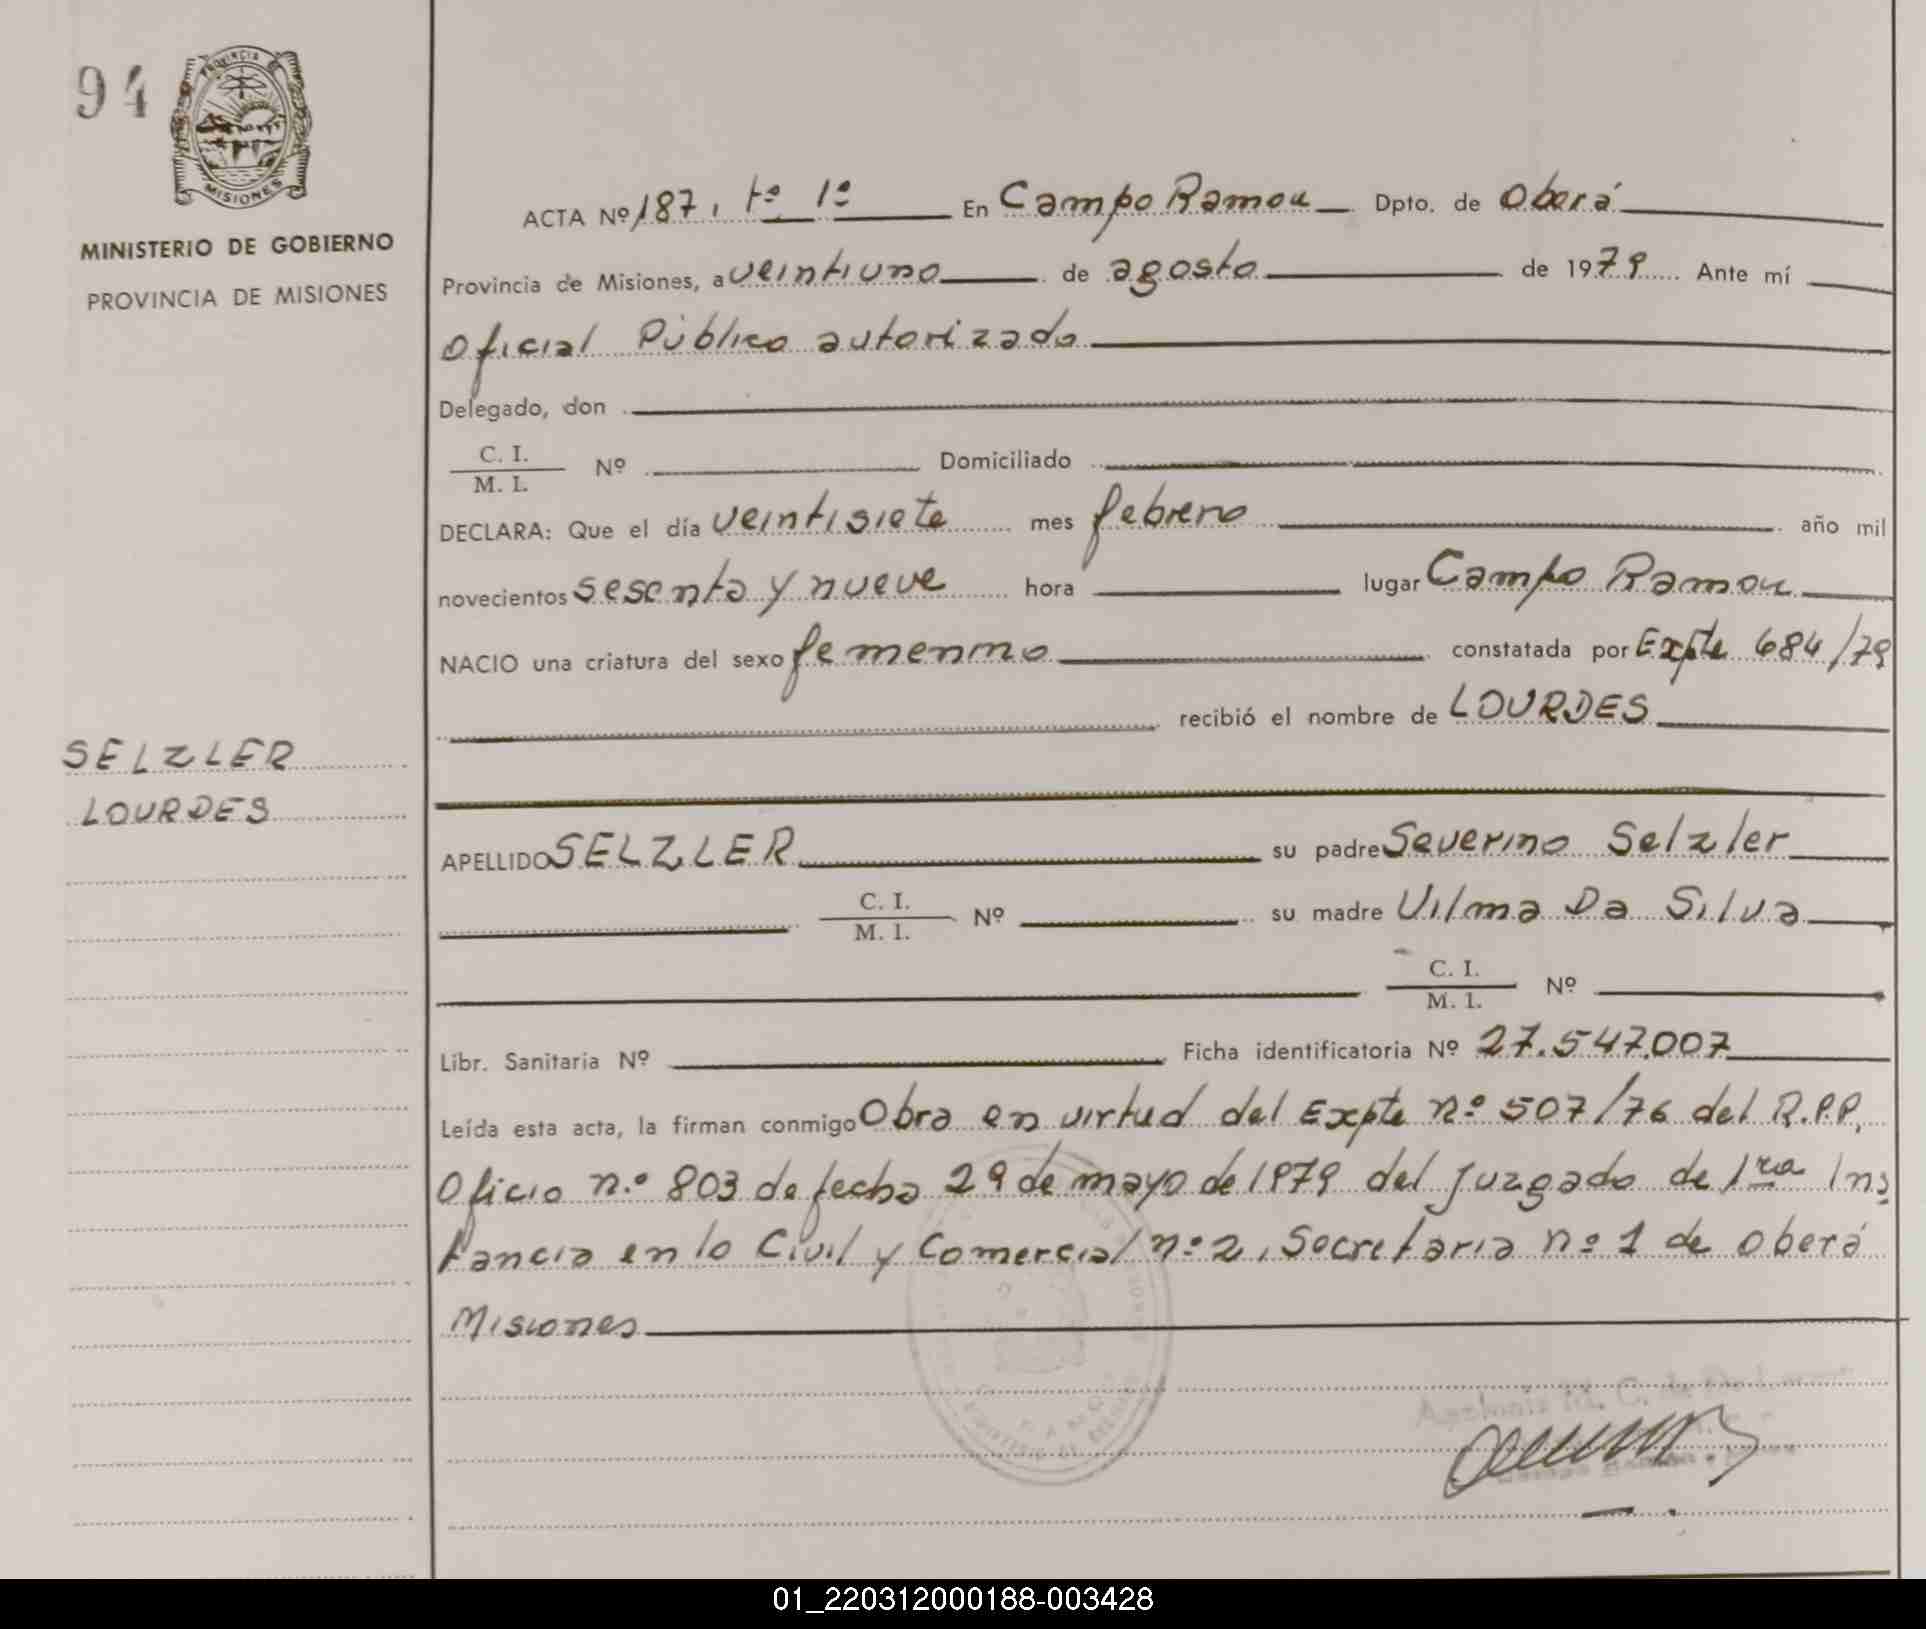 94
PROVINCIA DE
MISIONES
MINISTERIO DE GOBIERNO
PROVINCIA DE MISIONES
ACTA Nº 187, tº 1º En Campo Ramon Dpto. de Oberá
Provincia de Misiones, a veintiuno de agosto de 1979 Ante mí
Oficial Público autorizado
Delegado, don
C. I.
M. I. Nº Domiciliado
DECLARA: Que el día veintisiete mes febrero año mil
novecientos sesenta y nueve hora lugar Campo Ramon
NACIO una criatura del sexo femenino constatada por Expte 684/79
recibió el nombre de LOURDES
SELZLER
LOURDES
APELLIDO SELZLER su padre Severino Selzler
C. I.
M. I. Nº su madre Vilma Da Silva
C. I.
M. I. Nº
Libr. Sanitaria Nº Ficha identificatoria Nº 27.547.007
Leída esta acta, la firman conmigo Obra en virtud del Expte nº 507/76 del R.P.P.
Oficio n.º 803 de fecha 29 de mayo de 1979 del Juzgado de 1ra Ins
tancia en lo Civil y Comercial nº 2, Secretaria nº 1 de Oberá
Misiones
01_220312000188-003428